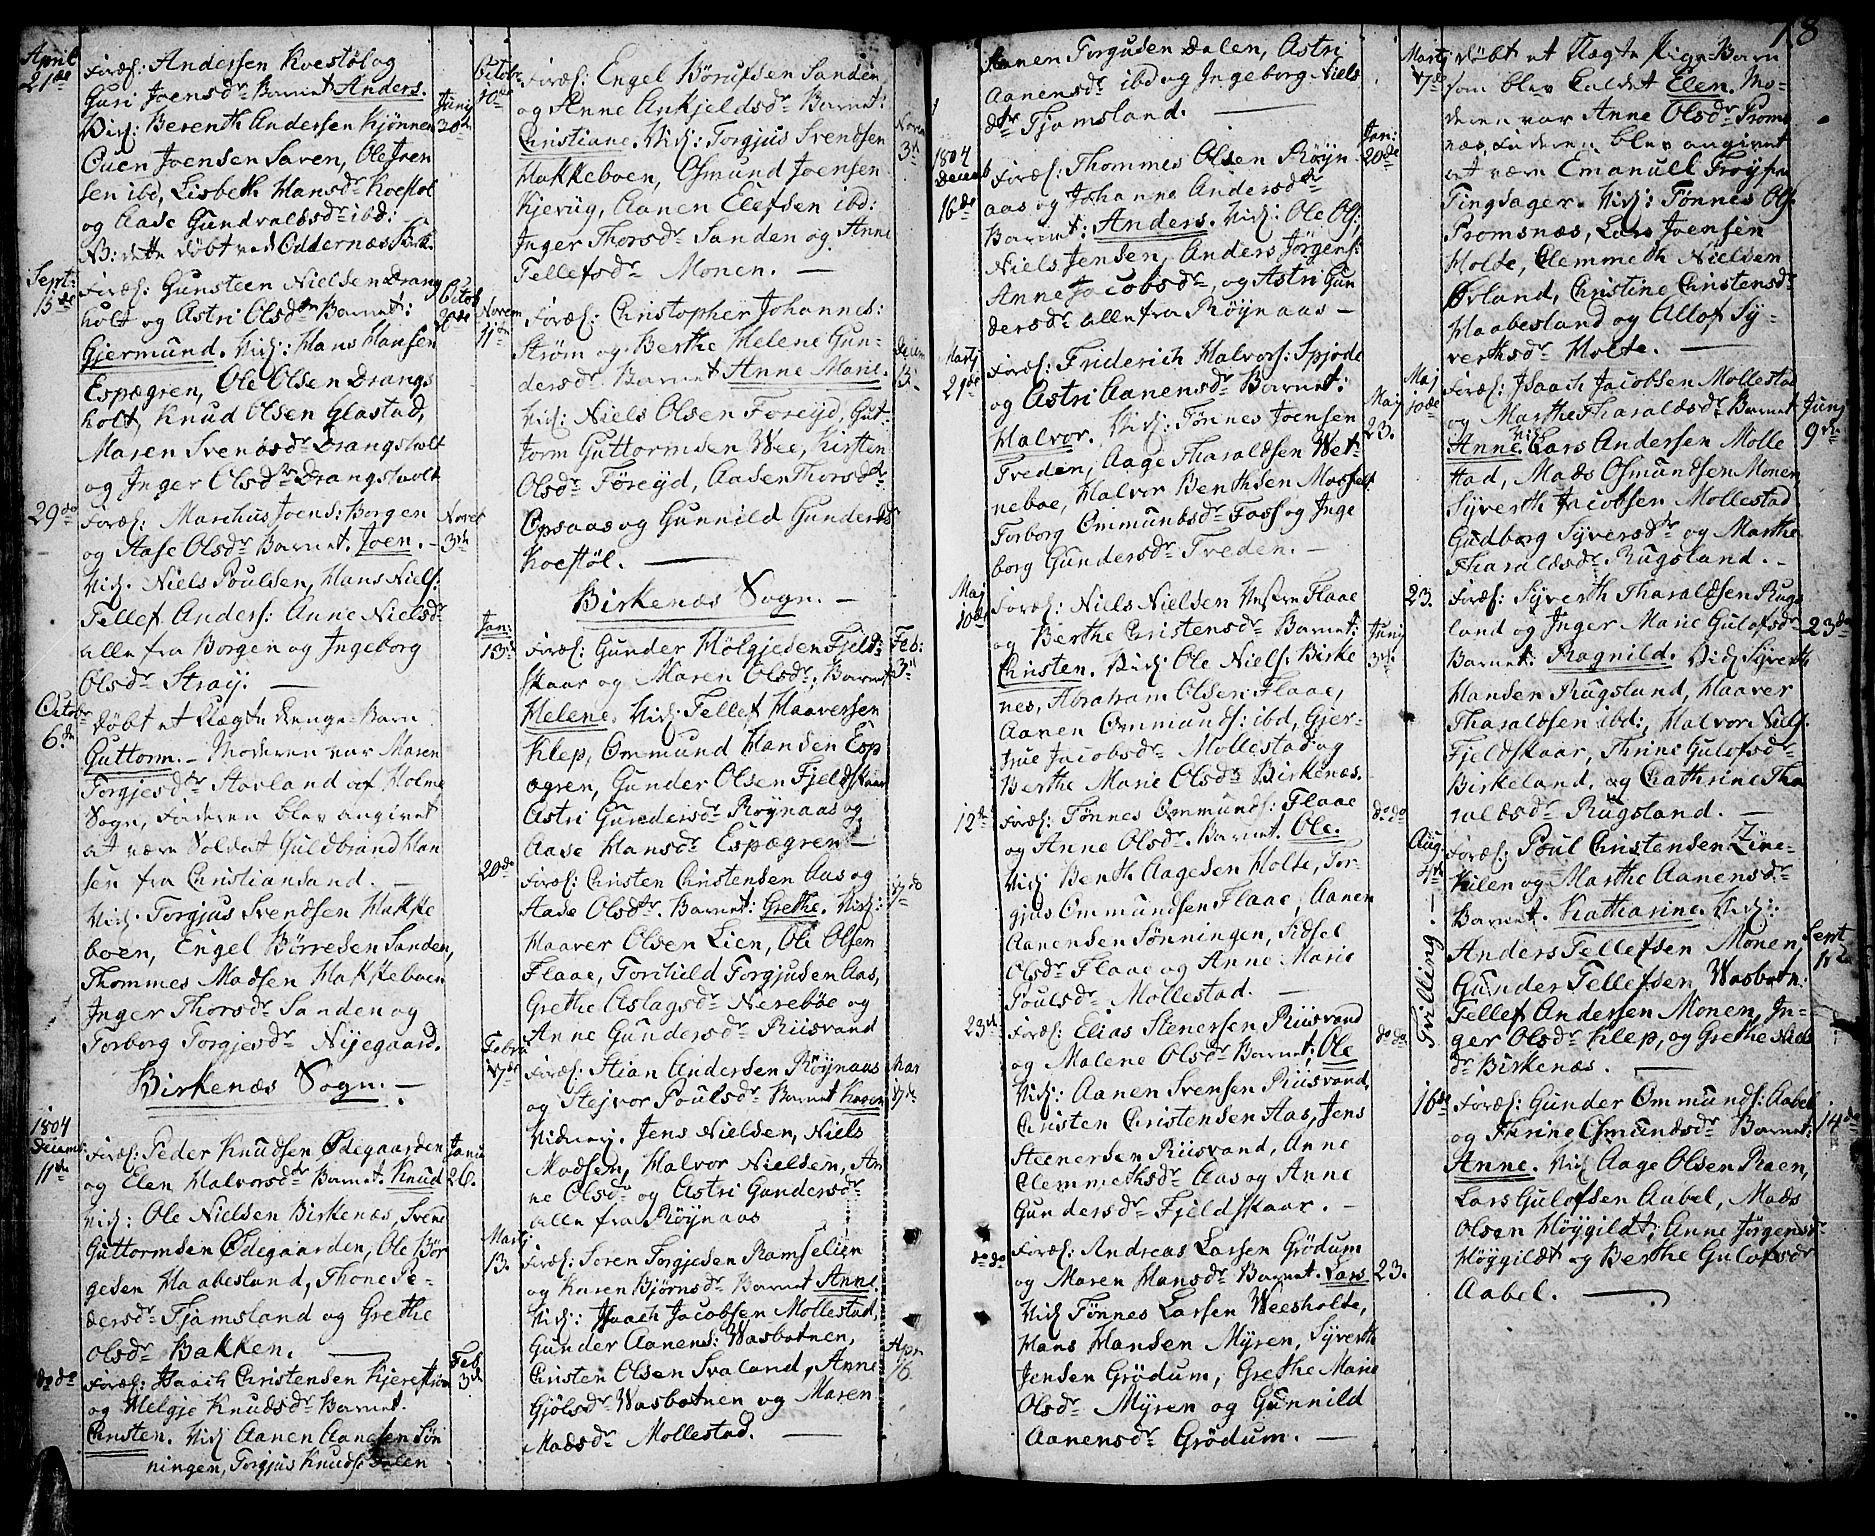 18
April
21de
Foræl: Andersen Kvestöl og
Guri Joensdr. Barnet Anders.
Vid: Berenth Andersen Kjönnen
Ouen Joensen Saven, Ole Joen
sen ibd, Lisbeth Hansdr Koestöl
og Aase Gundvaldsdr ibd:
NB: dette döbt ved Oddernæs Kirk.
Juny
30te
Sept:
15de
Foræl: Gunsteen Nielsen Drang
holt og Astri Olsdr Barnet:
Gjermund. Vid: Hans Hansen
Espægren, Ole Olsen Drangs
holt, Knud Olsen Glastad,
Maren Svensdr Drangsholt
og Inger Olsdr Drangsholt
Octob
20de
29de
Foræl: Marchus Joens: Borgen
og Aase Olsdr Barnet. Joen. -
Vid. Niels Poulsen, Hans Niels:
Tellef Anders: Anne Nielsdr
alle fra Borgen og Ingeborg
Olsdr Straÿ. —
Novem
3de
Octobr
6te
döbt et Uægte Drenge-Barn
Guttorm. - Moderen var Maren
Torgjesdr Aavland af Holme
Sogn, Faderen blev angivet
at være Soldat Guldbrand Han
sen fra Christiansand. -
Vid. Torgjus Svendsen Hakke
boen, Engel Börresen Sanden,
Thommes Madsen Hakkeboen
Inger Thorsdr Sanden og
Torborg Torgjesdr Nÿegaard.
Birkenæs Sogn. -
1804
Decemb
11te
Foræl: Peder Knudsen Ödegaarden
og Elen Halvorsdr Barnet. Knud
Vid: Ole Nielsen Birkenæs, Svend
Guttormsen Ödegaarden, Ole Bör
gesen Haabesland, Thone Pe-
dersdr Tjamsland og Grethe
Olsdr Bakken. —
Janu
26.
do do
Foræl: Isaach Christensen Kjerestrøm
og Helgje Knudsdr Barnet.
Christen. Vid Aanen Aanesen Sön
ningen, Torgjus Knuds: Dalen
Feb
3de
Octobr
10de
Foræl: Engel Börufsen Sanden
og Anne Ankjeldsdr Barnet:
Christiane. Vid: Torgjus Svendsen
Hakkeboen, Osmund Joensen
Kjevüg, Aanen Elefsen ibd:
Inger Thorsdr Sanden og Anne
Tellefsdr Monen. —
Novem
3de
Novem
11te
Foræl: Christopher Johannes:
Ström og Berthe Helene Gun-
dersdr Barnet Anne Marie.
Vid: Niels Olsen Foreÿd, Gut-
torm Guttormsen Wee, Kirsten
Olsdr Föreÿd, Aasen Thorsdr
Opsaas og Gunnild Gundersdr
Koestöl. —
Birkenæs Sogn. -
Jan:
13de
Foræl: Gunder Hölgjesen Fjeld-
skaar og Maren Olsdr; Barnet
Helene. Vid: Tellef Haaversen
Klep, Ommund Hansen Esp
ægren, Gunder Olsen Fjeldskaar
Astri Gundersdr Röÿnaas og
Aase Hansdr Espægren -
Feb:
3de
20de
Foræl: Christen Christensen Aas og
Aase Olsdr. Barnet: Grethe. Vid:
Haaver Olsen Lien, Ole Olsen
Flaae, Torchild Torgjusen Aas,
Grethe Aslagsdr Nereböe og
Anne Gundersdr Riisvand
17de
Febru
17de
Foræl: Stian Andersen Röÿnaas
og Stejvor Poulsdr Barnet Karen
Vid. Jens Nielsen, Niels
Madsen, Halvor Nielsen, An
ne Olsdr og Astri Gundersdr
alle fra Röÿnaas
Mar
17de
Martj
13.
Foræl: Sören Torgjesen Ramselien
og Karen Björnsdr Barnet Anne.
Vid: Isaach Jacobsen Mollestad,
Gunder Aanens: Wasbotnen,
Christen Olsen Svaland, Anne
Gjölsdr Wasbotnen og Maren
Madsdr Mollestad. —
Apr
16.
Aanen Torgusen Dalen, Astri
Aanensdr ibd og Ingeborg Niels
dr Tjamsland. —
1804
Decemb
16de
Foræl: Thommes Olsen Röÿn
aas og Johanne Andersdr
Barnet: Anders. Vid: Ole Ols:
Niels Jensen, Anders Jörgens:
Anne Jacobsdr, og Astri Gun
dersdr alle fra Röÿnaas -
Jan:
20de
Martj
21de
Foræl: Friderich Halvors: Spjöde
og Astri Aanensdr Barnet:
Halvor. Vid: Tönnes Joensen
Tveden, Aage Tharaldsen Wet-
neboe, Halvor Benthsen Mosfell
Torborg Ommundsdr Foss og Inge
borg Gundersdr Tveden. -
Maj
23.
Maj
10de
Foræl: Niels Nielsen Vestre Flaae
og Berthe Christensdr Barnet:
Christen. Vid: Ole Niels: Birke
nes, Abraham Olsen Flaae,
Aanen Ommunds: ibd, Gjer-
true Jacobsdr Mollestad og
Berthe Marie Olsdr Birkenæs.
Junj
3de
12te
Foræl: Tönnes Ommunds: Flaae
og Anne Olsdr Barnet. Ole.
Vid: Benth Aagesen Holte, Tor-
gjus Ommundsen Flaae, Aanen
Aanensen Sönningen, Sidsel
Olsdr Flaae og Anne Marie
Poulsdr Mollestad. —
do do
23de
Foræl: Elias Stenersen Riisvand
og Malene Olsdr Barnet; Ole
Vid: Aanen Svensen Riisvand,
Christen Christensen Aas, Jens
Steenersen Riisvand, Anne
Clemmethsdr Aas og Anne
Gundersdr Fjeldskaar. -
do do
do do
Foræl: Andreas Larsen Grödum
og Maren Hansdr Barnet. Lars
Vid Tönnes Larsen Weesholte,
Hans Hansen Mÿren, Sÿverth
Jensen Grödum, Grethe Marie
Olsdr Mÿren og Gunnild
Aanensdr Grödum. —
23.
Martj
17de
döbt et Uægte Pige-Barn
som blev kaldet Elen. Mo-
deren var Anne Olsdr Proms
næs, Faderen blev angivet
at være Emanuell Tröÿsen
Tingsager. Vid: Tönnes Ols:
Promsnæs, Lars Joensen
Holte, Clemmeth Nielsen
Örland, Christine Christensdr
Haabesland og Allof Sÿ-
verthsdr Holte. —
Maj
10de
Foræl: Isaach Jacobsen Mollestad
og Marthe Tharaldsdr Barnet
Anne. Vid: Lars Andersen Molle
stad, Mads Osmundsen Monen
Sÿverth Jacobsen Mollestad
Gudborg Sÿversdr og Marthe
Tharaldsdr Rugsland. -
Junj
9de
23.
Foræl: Sÿverth Tharaldsen Rugs
land og Inger Marie Gulofsdr
Barnet: Ragnild. Vid Sÿverth
Hansen Rugsland, Haaver
Tharaldsen ibd; Halvor Niels:
Fjeldskaar, Thrine Gulofsdr
Birkeland, og Cathrine Tha
raldsdr Rugsland. —
23de
Aug.
4de
Tvilling
Foræl: Poul Christensen Line-
kilen og Marthe Aanensdr
Barnet. Katharine. Vid:
Anders Tellefsen Monen,
Gunder Tellefsen Wasbotn:
Tellef Andersen Monen, In-
ger Olsdr Klep, og Grethe Niels
dr Birkenæs. —
Sept
16de
Foræl: Gunder Ommunds: Aabel
og Thrine Osmundsdr Barnet:
Anne. Vid Aage Olsen Raen,
Lars Gulofsen Aabel, Mads
Olsen Höÿgildt; Anne Jörgensdr
Höÿgildt og Berthe Gulofsdr
Aabel. —
14de